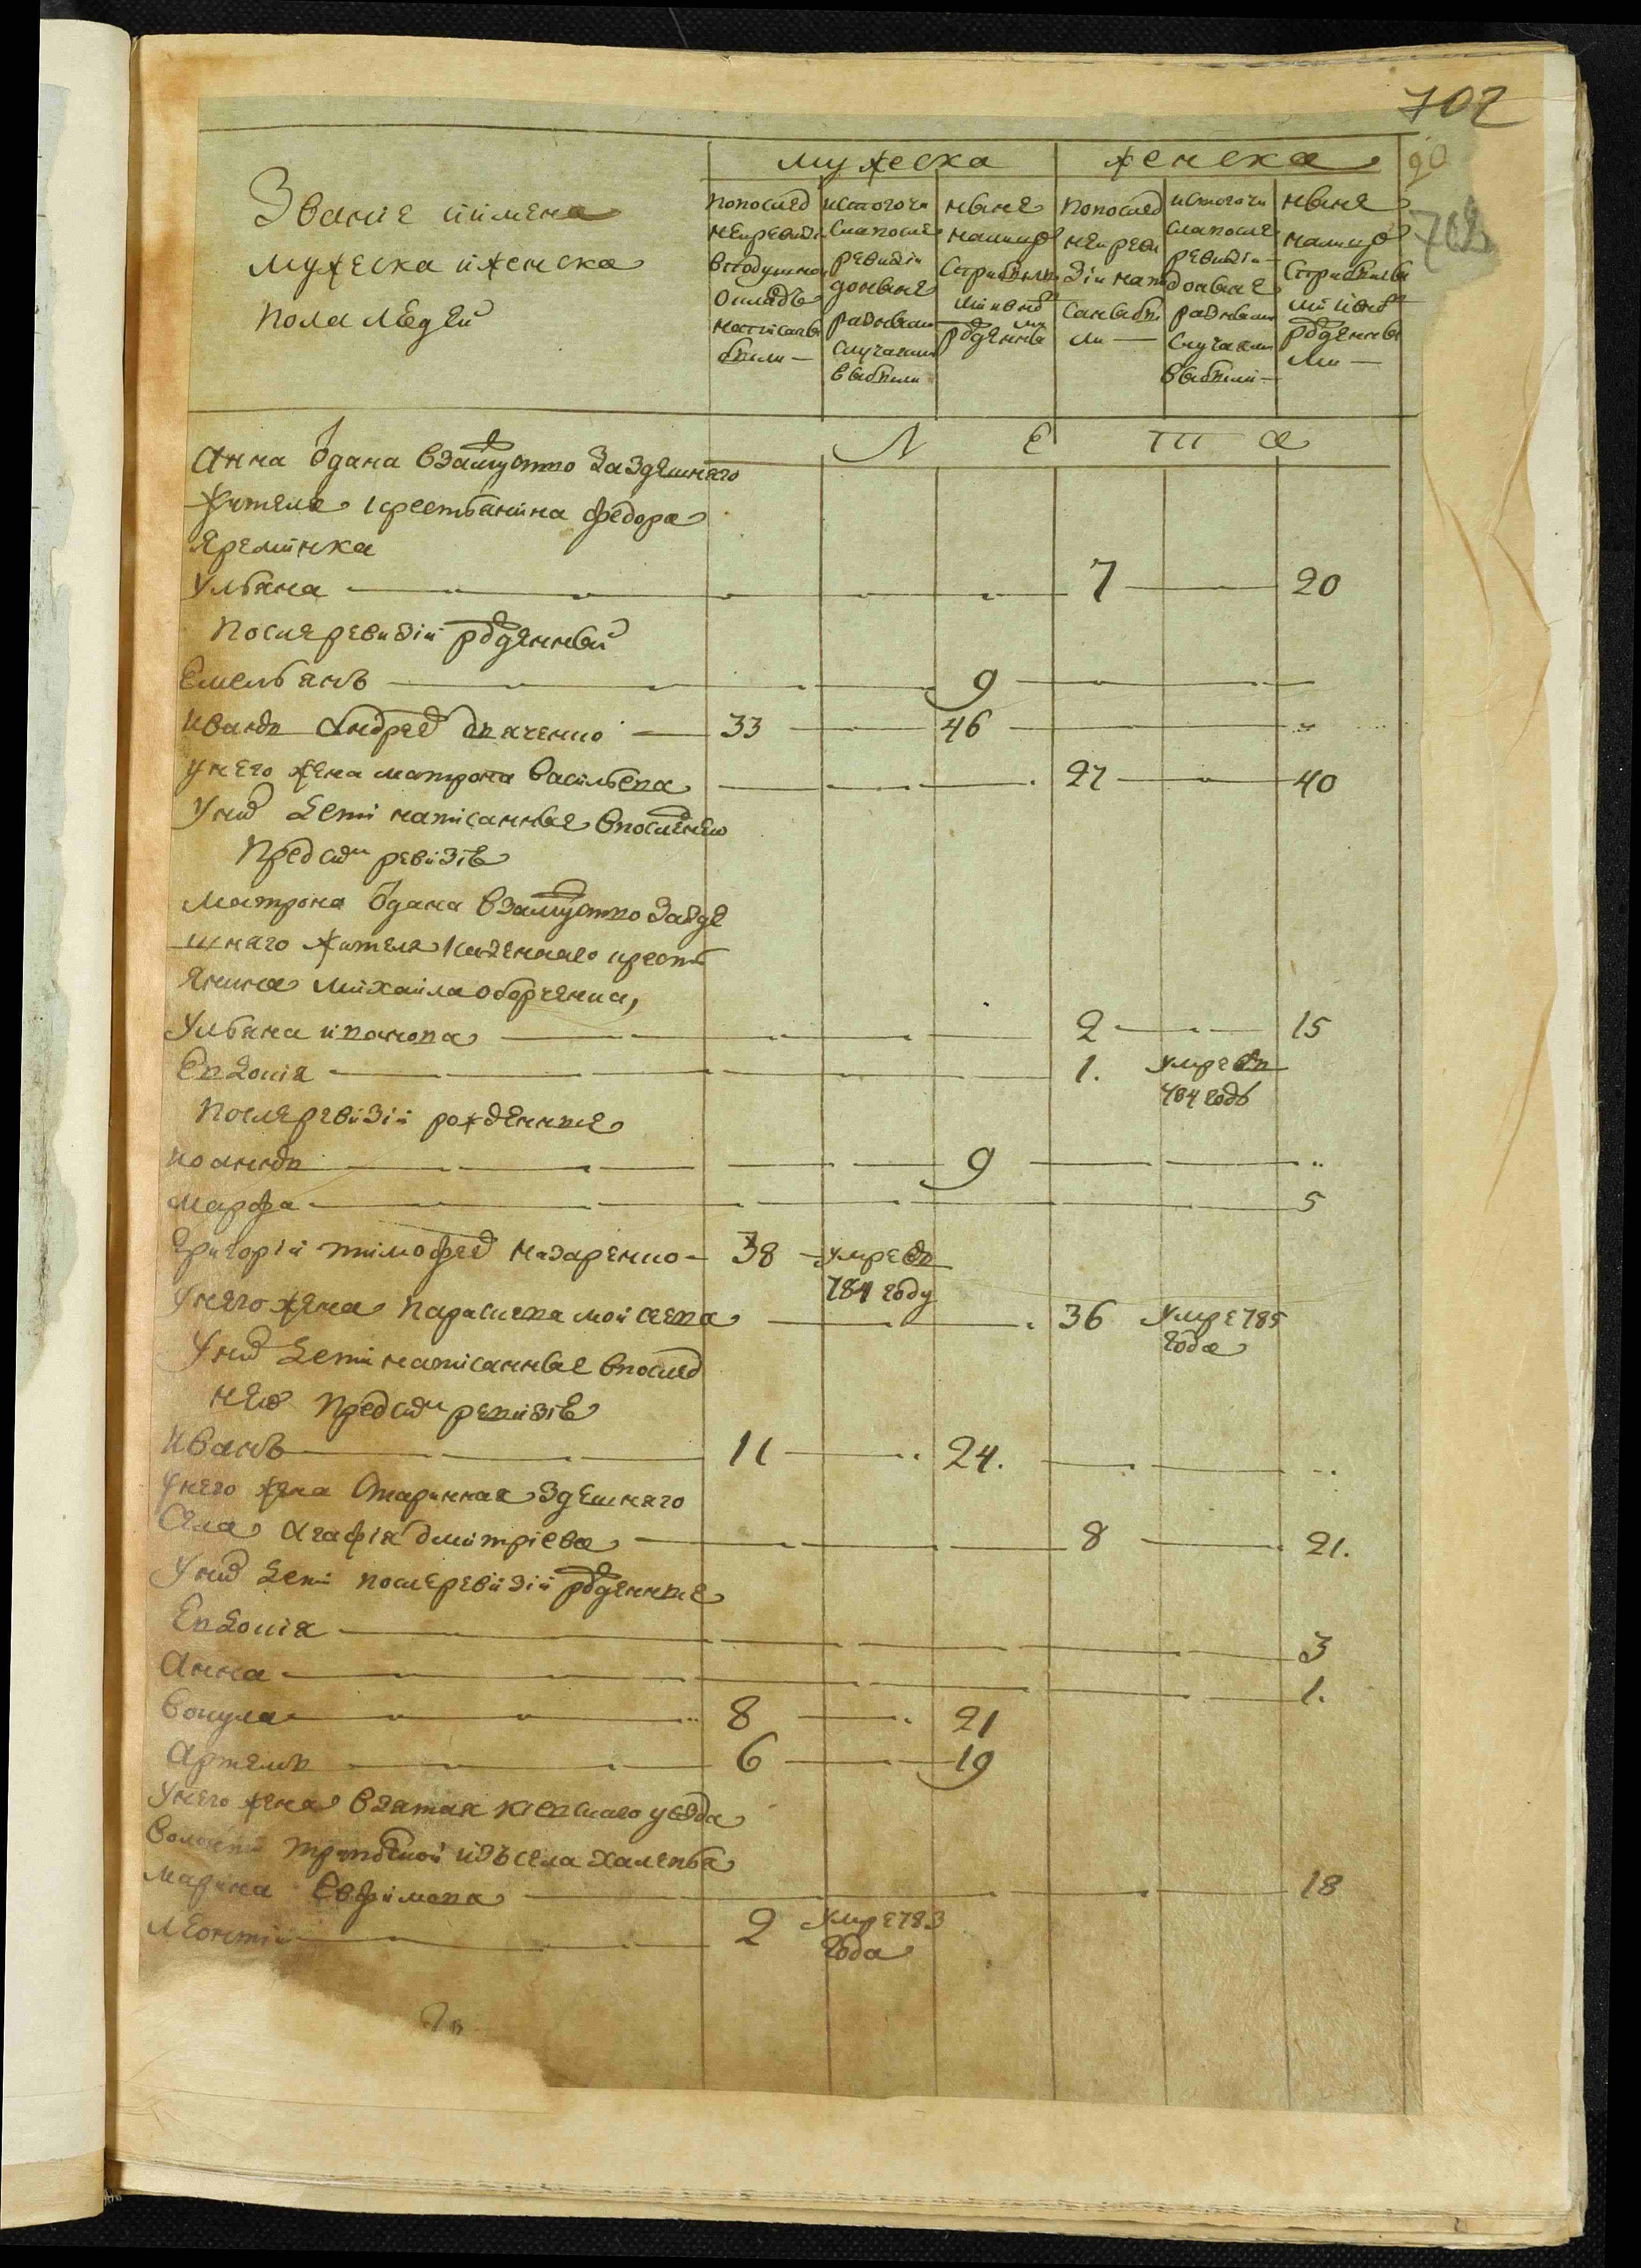 702
мужеска женска 90
702
Званіе иимена
мужеска иженска
пола людей
попослед
неиревизіи
вподушном
окладѣ
написаны
были —
истогочи
сла после
ревизіи
донынѣ
разными
случаями
выбыли
ныне
налицо
Сприбылы
ми ивновъ
рожденны
ми
попослед
неиреви
зіи напи
саныбы
ли —
истогочи
слапосле
ревизіи —
донынѣ
разными
случаями
выбыли —
ныне
налицо
Сприбылы
ми ивновъ
рожденны
ми —
Л Е Т А
Анна одана взамужство заздешняго
жителя крестьянина федора
Яремѣнка
Ульяна — 7 — 20
послеревизіи рожденный
Емельянъ — 9 —
Иванъ Андреевъ Ткаченко — 33 — 46 —
унего жена матрона васильева — 27 — 40
Унихъ дети написанные впоследнею
Предсимъ ревизію
Матрона одана взамужство заздѣ
шняго жителя казенного кресть
янина михайла оборченка,
Ульяна ипакова — 2 — 15
Евдокія — 1. умре въ
784 годѣ
Послеревизіи рожденные
Иоаннъ — 9 —
марфа — 5
Григорій тимофеевъ назаренко — 38 — умре въ
784 году
Унего жена параскева мойсеева — 36 умре 785
года
Унихъ дети написанные впослед
нею предсимъ ревизію
Иванъ — 11 — 24.
унего жена старинная здешняго
Села Агафія дмитріева — 8 — 21.
Унихъ дети послеревизіи рожденные
Евдокія — 3
Анна — 1.
вокула — 8 — 21
Артемъ — 6 — 19
Унего жена взятая кіевскаго уезда
волости трипольской изъ села халепья
Марина Евфимова — 18
Леонтій — 2 умре 783
года